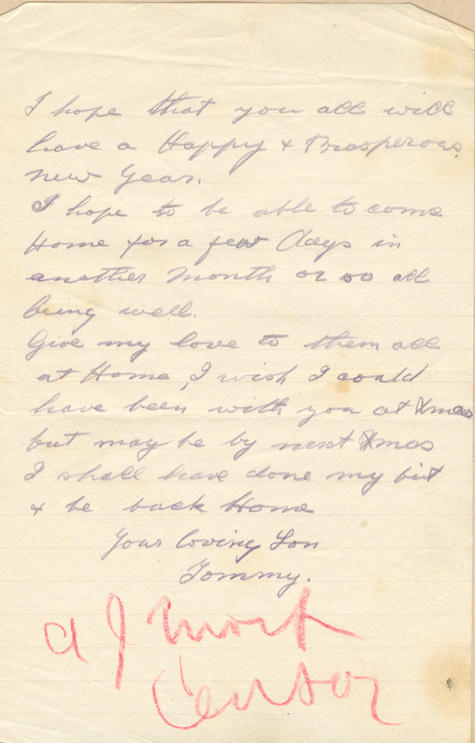 I hope that you all will
have a Happy & Prosperous
New Year.
I hope to be able to come
Home for a few days in
another Month or so all
being well.
Give my love to them all
at Home, I wish I could
have been with you at Xmas
but may be by next Xmas
I shall have done my bit
& be back Home
Your loving Son
Tommy.
Censor